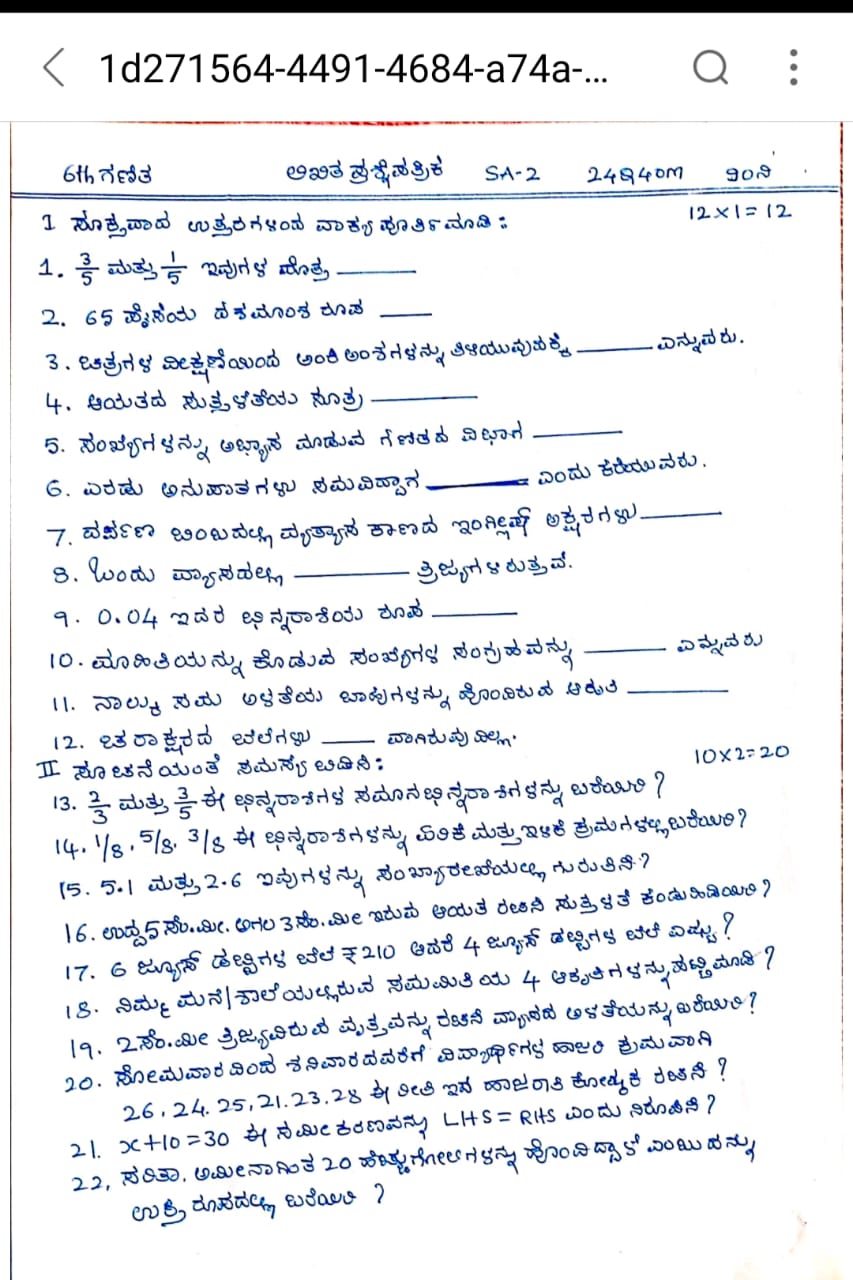 1d271564-4491-4684-a74a-...
6th ಗಣಿತ ಲಿಖಿತ ಪ್ರಶ್ನೆಪತ್ರಿಕೆ SA-2 24Q40M 90ನಿ
I ಸೂಕ್ತವಾದ ಉತ್ತರಗಳಿಂದ ವಾಕ್ಯ ಪೂರ್ತಿಮಾಡಿ : 12×1=12
1. 3/5 ಮತ್ತು 1/5 ಇವುಗಳ ಮೊತ್ತ ______
2. 65 ಪೈಸೆಯ ದಶಮಾಂಶ ರೂಪ ____
3. ಚಿತ್ರಗಳ ವೀಕ್ಷಣೆಯಿಂದ ಅಂಕಿ ಅಂಶಗಳನ್ನು ತಿಳಿಯುವುದಕ್ಕೆ ______ ಎನ್ನುವರು.
4. ಆಯತದ ಸುತ್ತಳತೆಯ ಸೂತ್ರ ________
5. ಸಂಖ್ಯೆಗಳನ್ನು ಅಭ್ಯಾಸ ಮಾಡುವ ಗಣಿತದ ವಿಭಾಗ ______
6. ಎರಡು ಅನುಪಾತಗಳು ಸಮವಿದ್ದಾಗ ________ ಎಂದು ಕರೆಯುವರು.
7. ದರ್ಪಣ ಬಿಂಬದಲ್ಲಿ ವ್ಯತ್ಯಾಸ ಕಾಣದ ಇಂಗ್ಲೀಷ್ ಅಕ್ಷರಗಳು ______
8. ಒಂದು ವ್ಯಾಸದಲ್ಲಿ ________ ತ್ರಿಜ್ಯಗಳಿರುತ್ತವೆ.
9. 0.04 ಇದರ ಭಿನ್ನರಾಶಿಯ ರೂಪ ______
10. ಮಾಹಿತಿಯನ್ನು ಕೊಡುವ ಸಂಖ್ಯೆಗಳ ಸಂಗ್ರಹವನ್ನು ______ ಎನ್ನುವರು
11. ನಾಲ್ಕು ಸಮ ಅಳತೆಯ ಬಾಹುಗಳನ್ನು ಹೊಂದಿರುವ ಆಕೃತಿ ________
12. ಚರಾಕ್ಷರದ ಬೆಲೆಗಳು ____ ವಾಗಿರುವುದಿಲ್ಲ.
II ಸೂಚನೆಯಂತೆ ಸಮಸ್ಯೆ ಬಿಡಿಸಿ : 10×2=20
13. 2/3 ಮತ್ತು 3/5 ಈ ಭಿನ್ನರಾಶಿಗಳ ಸಮಾನಭಿನ್ನರಾಶಿಗಳನ್ನು ಬರೆಯಿರಿ ?
14. 1/8, 5/8, 3/8 ಈ ಭಿನ್ನರಾಶಿಗಳನ್ನು ಏರಿಕೆ ಮತ್ತು ಇಳಿಕೆ ಕ್ರಮಗಳಲ್ಲಿ ಬರೆಯಿರಿ ?
15. 5.1 ಮತ್ತು 2.6 ಇವುಗಳನ್ನು ಸಂಖ್ಯಾರೇಖೆಯಲ್ಲಿ ಗುರುತಿಸಿ ?
16. ಉದ್ದ 5 ಸೆಂ.ಮೀ. ಅಗಲ 3 ಸೆಂ.ಮೀ ಇರುವ ಆಯತ ರಚಿಸಿ ಸುತ್ತಳತೆ ಕಂಡುಹಿಡಿಯಿರಿ ?
17. 6 ಜ್ಯೂಸ್ ಡಬ್ಬಿಗಳ ಬೆಲೆ ₹210 ಆದರೆ 4 ಜ್ಯೂಸ್ ಡಬ್ಬಿಗಳ ಬೆಲೆ ಎಷ್ಟು ?
18. ನಿಮ್ಮ ಮನೆ/ಶಾಲೆಯಲ್ಲಿರುವ ಸಮಮಿತಿಯ 4 ಆಕೃತಿಗಳನ್ನು ಪಟ್ಟಿ ಮಾಡಿ ?
19. 2ಸೆಂ.ಮೀ ತ್ರಿಜ್ಯವಿರುವ ವೃತ್ತವನ್ನು ರಚಿಸಿ ವ್ಯಾಸದ ಅಳತೆಯನ್ನು ಬರೆಯಿರಿ ?
20. ಸೋಮವಾರದಿಂದ ಶನಿವಾರದವರೆಗೆ ವಿದ್ಯಾರ್ಥಿಗಳ ಹಾಜರಿ ಕ್ರಮವಾಗಿ
26, 24. 25, 21. 23. 28 ಈ ರೀತಿ ಇದೆ ಹಾಜರಾತಿ ಕೋಷ್ಟಕ ರಚಿಸಿ ?
21. x+10=30 ಈ ಸಮೀಕರಣವನ್ನು LHS = RHS ಎಂದು ನಿರೂಪಿಸಿ ?
22, ಸರಿತಾ. ಅಮೀನಾಗಿಂತ 20 ಹೆಚ್ಚು ಗೋಲಿಗಳನ್ನು ಹೊಂದಿದ್ದಾಳೆ ಎಂಬುದನ್ನು
ಉಕ್ತಿ ರೂಪದಲ್ಲಿ ಬರೆಯಿರಿ ?